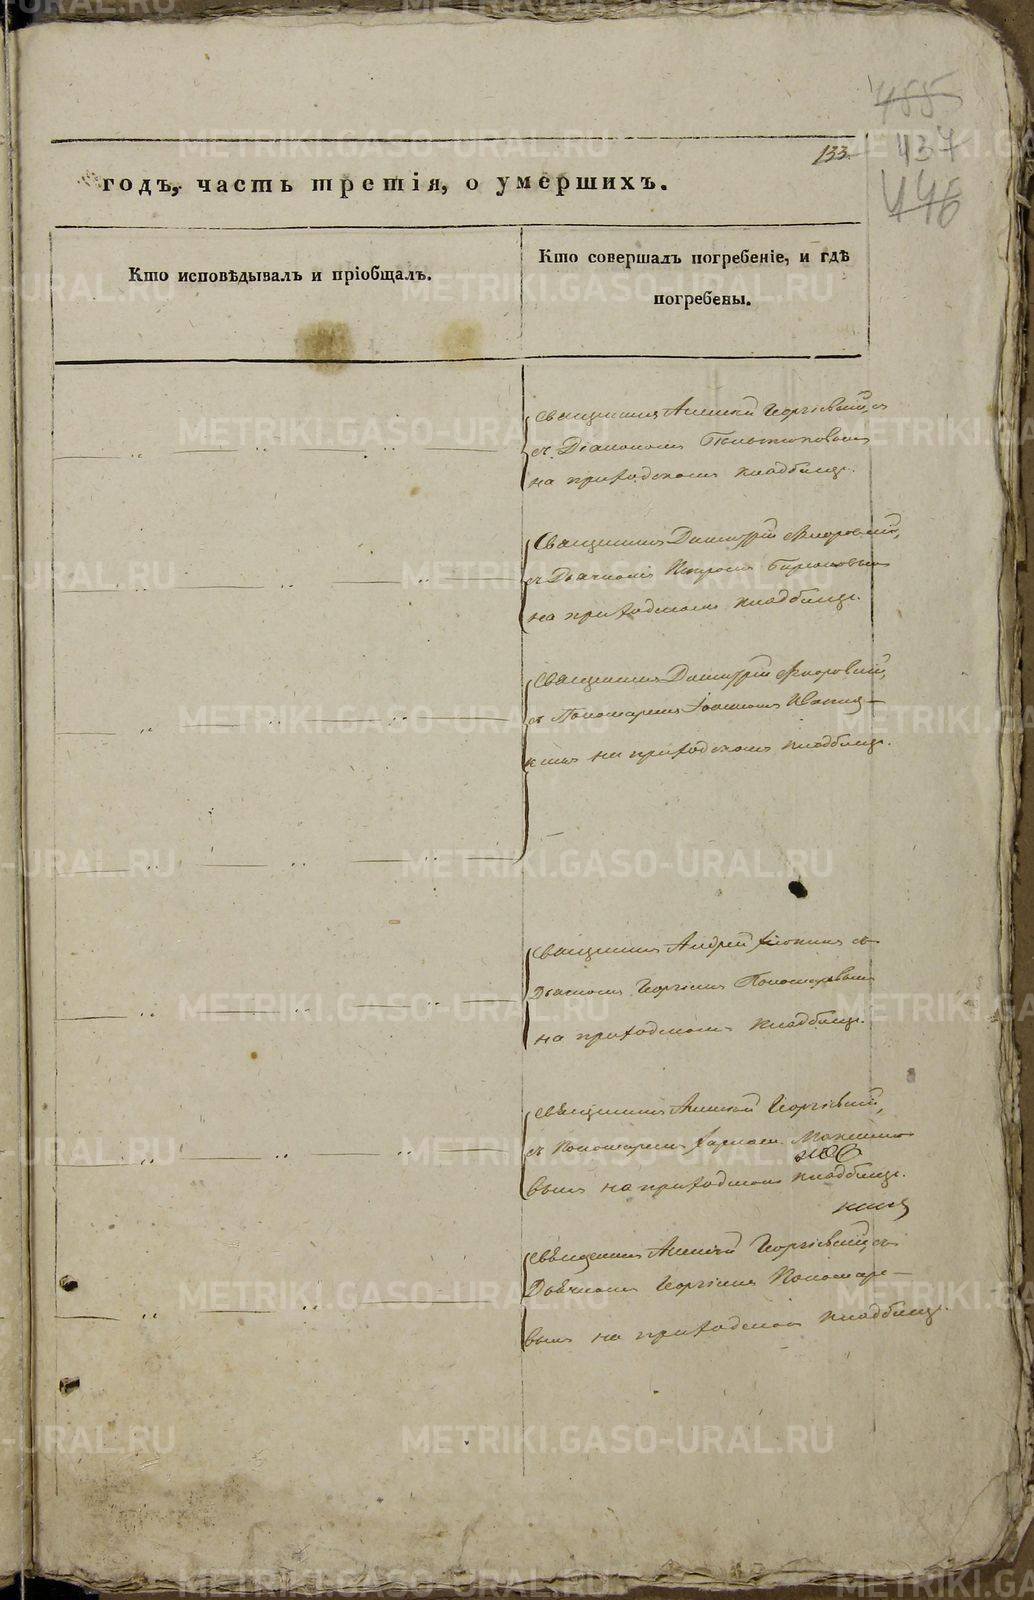 455
437
446
133.
годъ, часть третія, о умершихъ.
Кто исповѣдывалъ и пріобщалъ.
Кто совершалъ погребеніе, и гдѣ
погребены.
Священникъ Алексѣй Георгіевскій, съ
Діакономъ
на приходскомъ кладбищѣ.
Священникъ Димитрій Флоровскій,
съ Дьячкомъ Петромъ
на приходскомъ кладбищѣ.
Священникъ Димитрій Флоровскій,
съ Пономаремъ Іоанномъ
на приходскомъ кладбищѣ.
Священникъ Андрей съ
Дьячкомъ Георгіемъ Пономаревымъ
на приходскомъ кладбищѣ.
Священникъ Алексѣй Георгіевскій,
съ Пономаремъ
вымъ на приходскомъ кладбищѣ.
Священникъ Алексѣй Георгіевскій, съ
Дьячкомъ Георгіемъ Пономаре-
вымъ на приходскомъ кладбищѣ.
METRIKI.GASO-URAL.RU